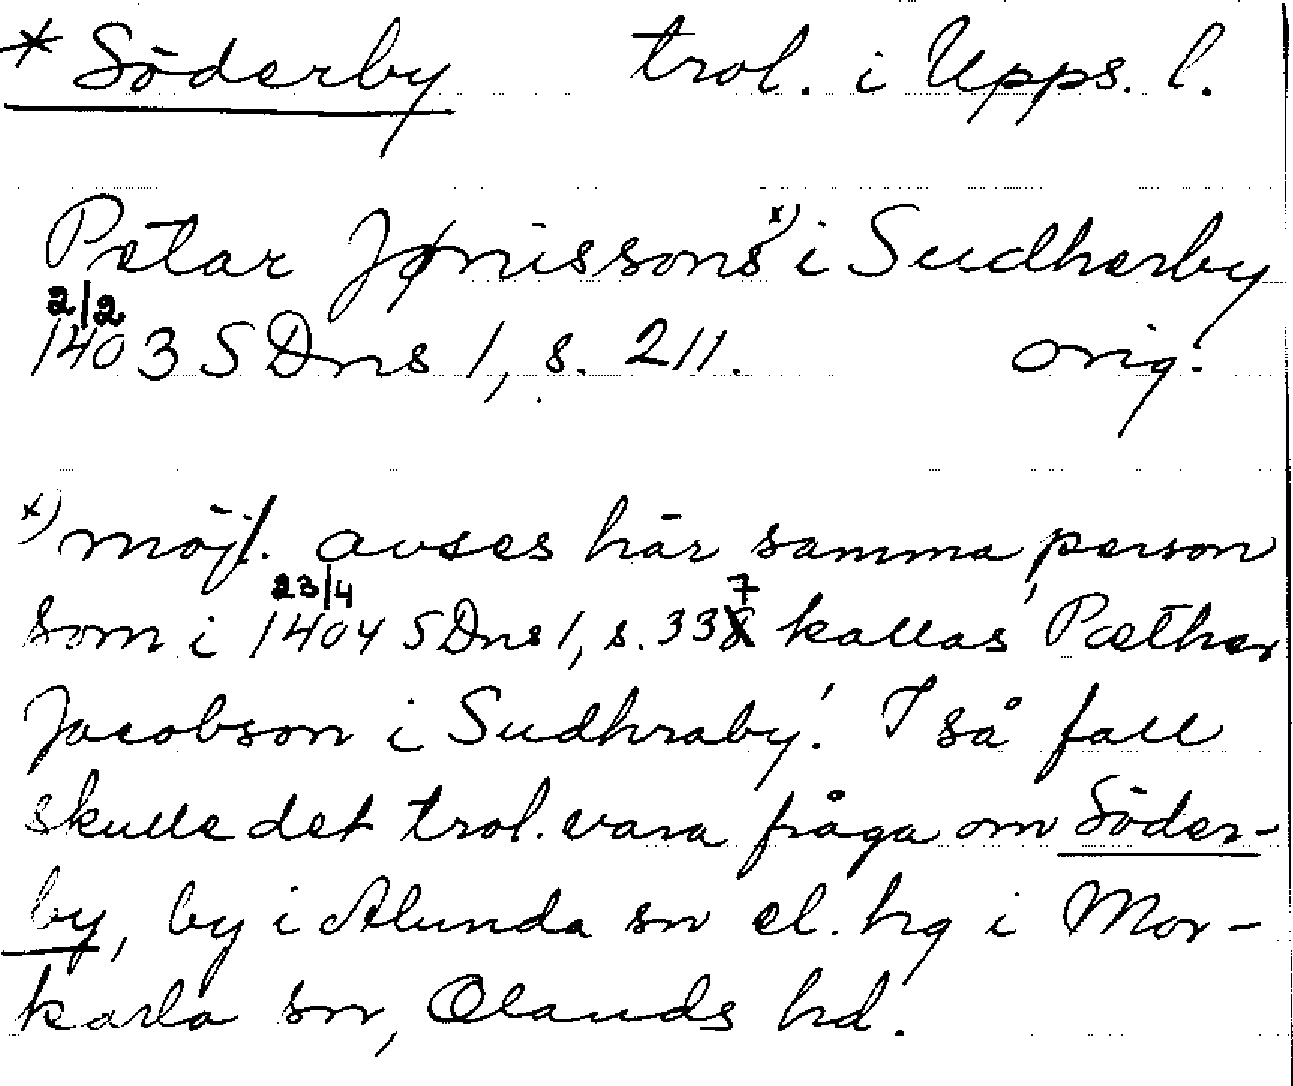 * Söderby trol. i Upps. l.
Petar Jønissons x) i Sudherby
2/2
1403 SDns 1, s. 211. orig.
x) möjl. avses här samma person
23/4 7
som i 1404 SDns 1, s. 338 kallas 'Pæther
Jacobson i Sudhraby'. I så fall
skulle det trol. vara fråga om Söder-
by, by i Alunda sn el. hg i Mor-
karla sn, Olands hd.